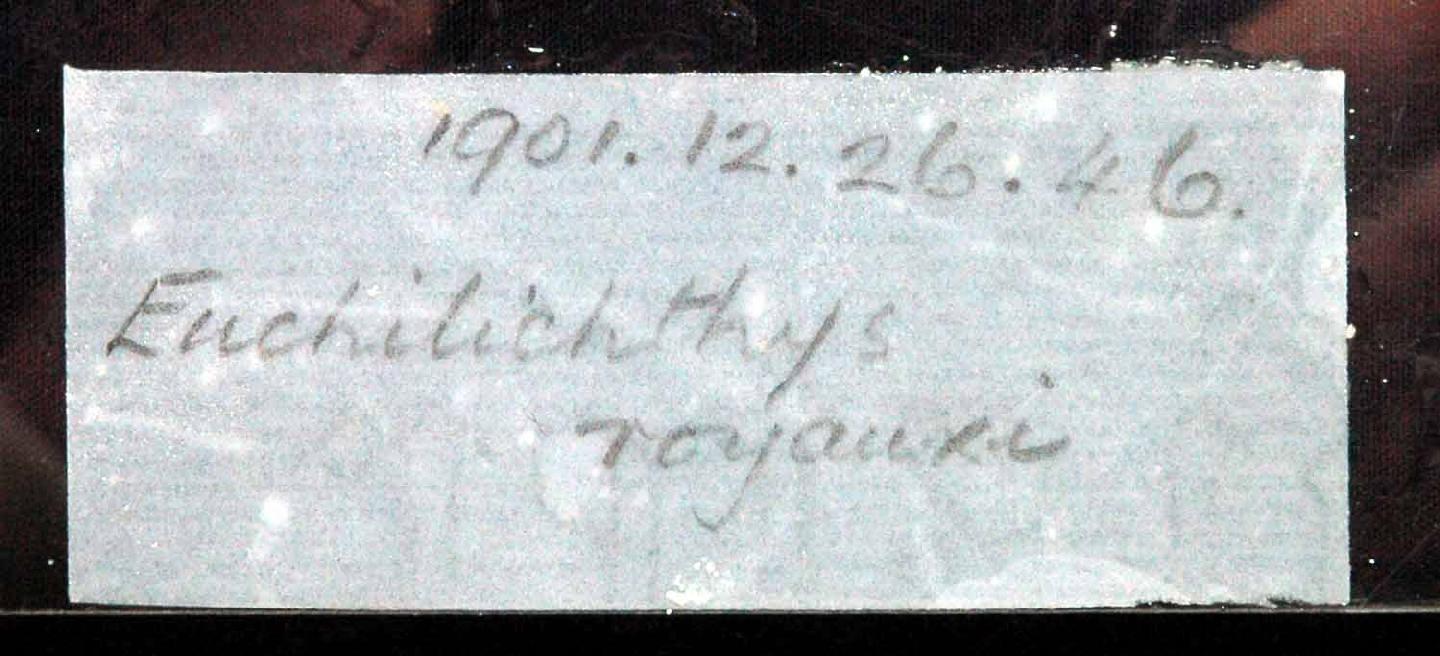 1901.12.26.46.
Euchilichthys
royauxi